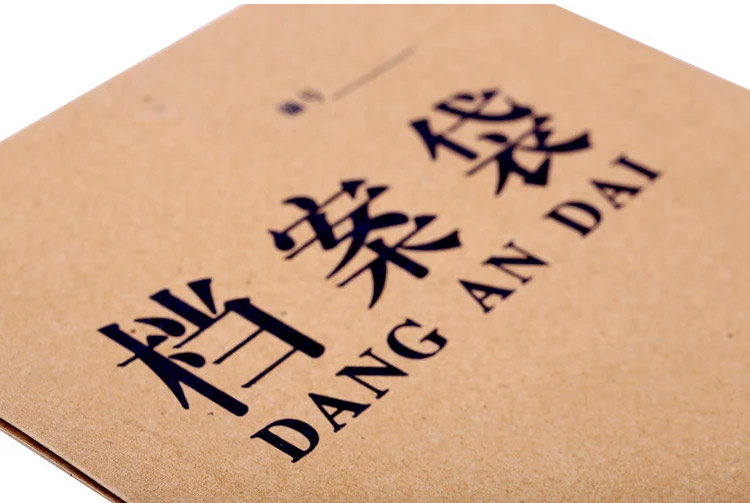 编号
档案袋
DANG AN DAI